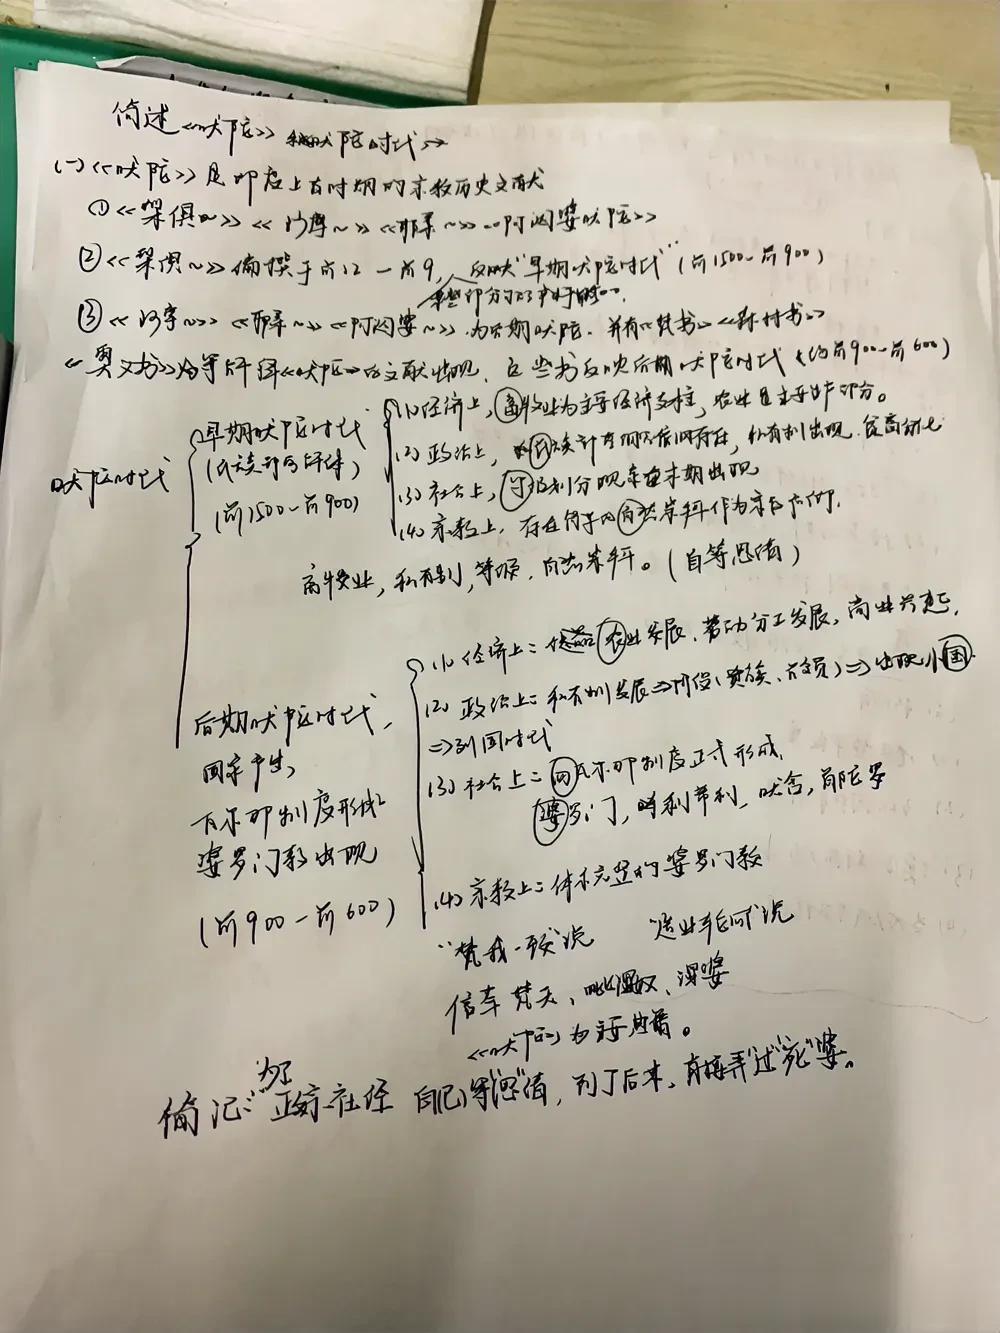 简述《吠陀》和吠陀时代
(一)《吠陀》是印度上古时期的宗教历史文献
①《梨俱~》《沙摩~》《耶柔~》《阿闼婆吠陀》
②《梨俱~》编撰于前12-前9,反映"早期吠陀时代"(前1500-前900)
某些部分
③《沙摩~》《耶柔~》《阿闼婆~》为后期吠陀.并有《梵书》《森林书》
《奥义书》等解释《吠陀》的文献出现,这些书反映后期吠陀时代(约前900-前600)
吠陀时代
早期吠陀时代
(氏族部落解体)
(前1500-前900)
(1)经济上,畜牧业为主要经济支柱,农业是主要生产部分。
(2)政治上,氏族部落存在,私有制出现.
(3)社会上,等级划分现象在末期出现
(4)宗教上,存在自然崇拜作为宗教信仰.
畜牧业,私有制,等级,自然崇拜。(自等思情)
后期吠陀时代,
国家产生,
瓦尔那制度形成
婆罗门教出现
(前900-前600)
(1)经济上:农业发展,劳动分工发展,商业兴起,
(2)政治上:私有制发展⇒阶级(贵族、)⇒出现小国
⇒列国时代
(3)社会上:瓦尔那制度正式形成,
婆罗门,刹帝利,吠舍,首陀罗
(4)宗教上:体系完整的婆罗门教
"梵我一致"说 "造业轮回"说
信奉梵天、毗湿奴、湿婆
《吠陀》为主要典籍。
为了
偷记:"政宗社经 自己等"思"情,到了后来,直接弄"过""死"婆。